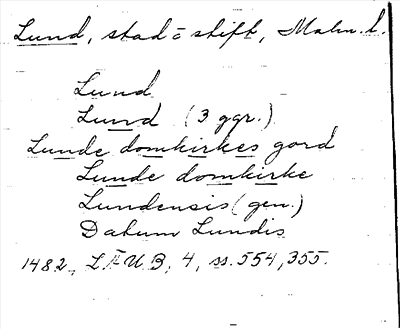 Lund, stad o stift, Malm. l.
Lund
Lund (3 ggr.)
Lunde domkirkes gord
Lunde domkirke
Lundensis (gen.)
Datum Lundis
1482, L.Ä.U.B, 4, ss. 554, 355.